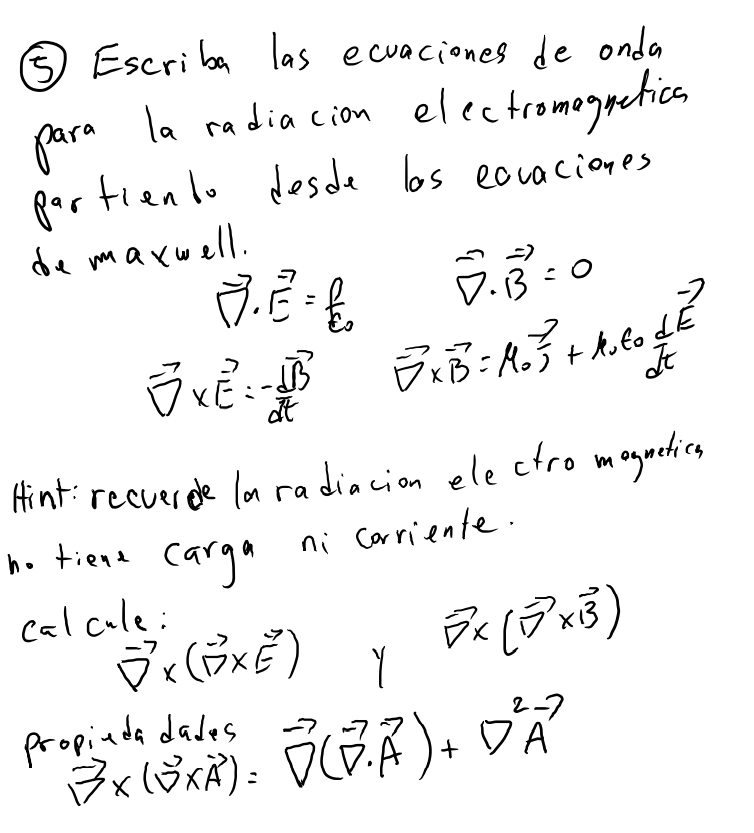 ⑤ Escriba las ecuaciones de onda
para la radiacion electromagnetica
partiendo desde las ecuaciones
de maxwell.
∇⃗·E⃗ = ρ/ε₀    ∇⃗·B⃗ = 0
∇⃗×E⃗ = -dB⃗/dt    ∇⃗×B⃗ = μ₀j⃗ + μ₀ε₀ dE⃗/dt
Hint: recuerde la radiacion electro magnetica
no tiene carga ni corriente.
calcule:
∇⃗×(∇⃗×E⃗) y ∇⃗×(∇⃗×B⃗)
propiedadades
∇⃗×(∇⃗×A⃗) = ∇⃗(∇⃗·A⃗) + ∇²A⃗